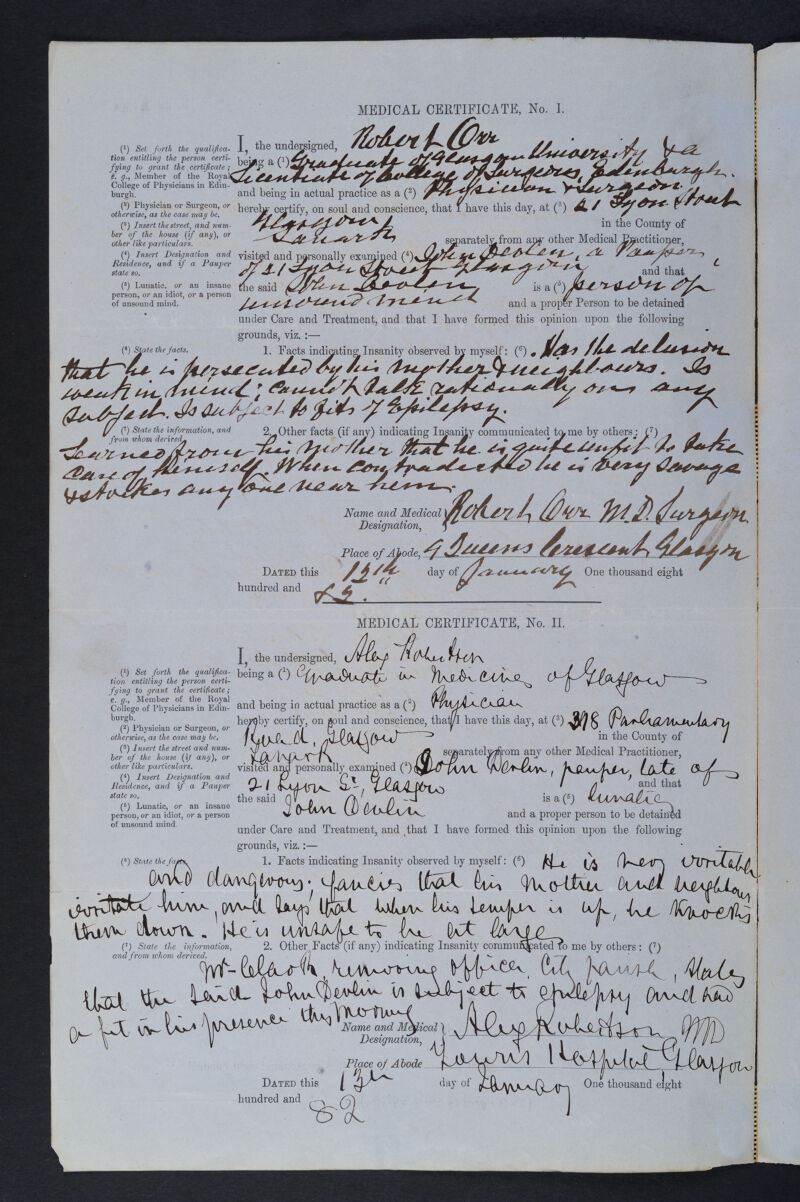 MEDICAL CERTIFICATE, No. I.
(¹) Set forth the qualifica-
tion entitling the person certi-
fying to grant the certificate;
e. g., Member of the Royal
College of Physicians in Edin-
burgh.
(²) Physician or Surgeon, or
otherwise, as the case may be.
(³) Insert the street, and num-
ber of the house (if any), or
other like particulars.
(⁴) Insert Designation and
Residence, and if a Pauper
state so.
(⁵) Lunatic, or an insane
person, or an idiot, or a person
of unsound mind.
I, the undersigned, Robert Orr
being a (¹) Graduate of Glasgow University & a
Licentiate of College of Surgeons, Edinburgh.
and being in actual practice as a (²) Physician & Surgeon
hereby certify, on soul and conscience, that I have this day, at (³) 21 Lyon Street
Glasgow in the County of
Lanark separately from any other Medical Practitioner,
visited and personally examined (⁴) John Devlin, a Pauper,
of 21 Lyon Street Glasgow and that
the said John Devlin is a (⁵) person of
unsound mind and a proper Person to be detained
under Care and Treatment, and that I have formed this opinion upon the following
grounds, viz. :—
(⁶) State the facts.
1. Facts indicating Insanity observed by myself: (⁶). Has the delusion
that he is persecuted by his mother & neighbours. Is
weak in mind; cannot talk rationally on any
subject. Is subject to fits of Epilepsy.
(⁷) State the information, and
from whom derived.
2. Other facts (if any) indicating Insanity communicated to me by others: (⁷)
Learned from his mother that he is quite unfit to take
care of himself. When contradicted he is very savage
& strikes any one near him.
Name and Medical Designation, Robert Orr M.D. Surgeon.
Place of Abode, 9 Queens Crescent Glasgow
DATED this 13th day of January One thousand eight
hundred and 82.
MEDICAL CERTIFICATE, No. II.
(¹) Set forth the qualifica-
tion entitling the person certi-
fying to grant the certificate;
e. g., Member of the Royal
College of Physicians in Edin-
burgh.
(²) Physician or Surgeon, or
otherwise, as the case may be.
(³) Insert the street and num-
ber of the house (if any), or
other like particulars.
(⁴) Insert Designation and
Residence, and if a Pauper
state so.
(⁵) Lunatic, or an insane
person, or an idiot, or a person
of unsound mind.
I, the undersigned, Alex Robertson
being a (¹) Graduate in Medicine of Glasgow
and being in actual practice as a (²) Physician
hereby certify, on soul and conscience, that I have this day, at (³) 318 Parliamentary
Road, Glasgow in the County of
Lanark separately from any other Medical Practitioner,
visited and personally examined (⁴) John Devlin, pauper, late of
21 Lyon St, Glasgow and that
the said John Devlin is a (⁵) Lunatic
and a proper person to be detained
under Care and Treatment, and that I have formed this opinion upon the following
grounds, viz. :—
(⁶) State the facts.
1. Facts indicating Insanity observed by myself: (⁶) He is very irritable
and dangerous; fancies that his mother and neighbours
irritate him, and says that when his temper is up, he knocks
them down. He is unsafe to be at large
(⁷) State the information,
and from whom derived.
2. Other Facts (if any) indicating Insanity communicated to me by others: (⁷)
Mr Clark, removing officer, City parish, states
that the said John Devlin is subject to epilepsy and had
a fit in his presence this morning
Name and Medical Designation, Alex Robertson MD
Place of Abode Towns Hospital Glasgow
DATED this 13th day of January One thousand eight
hundred and 82